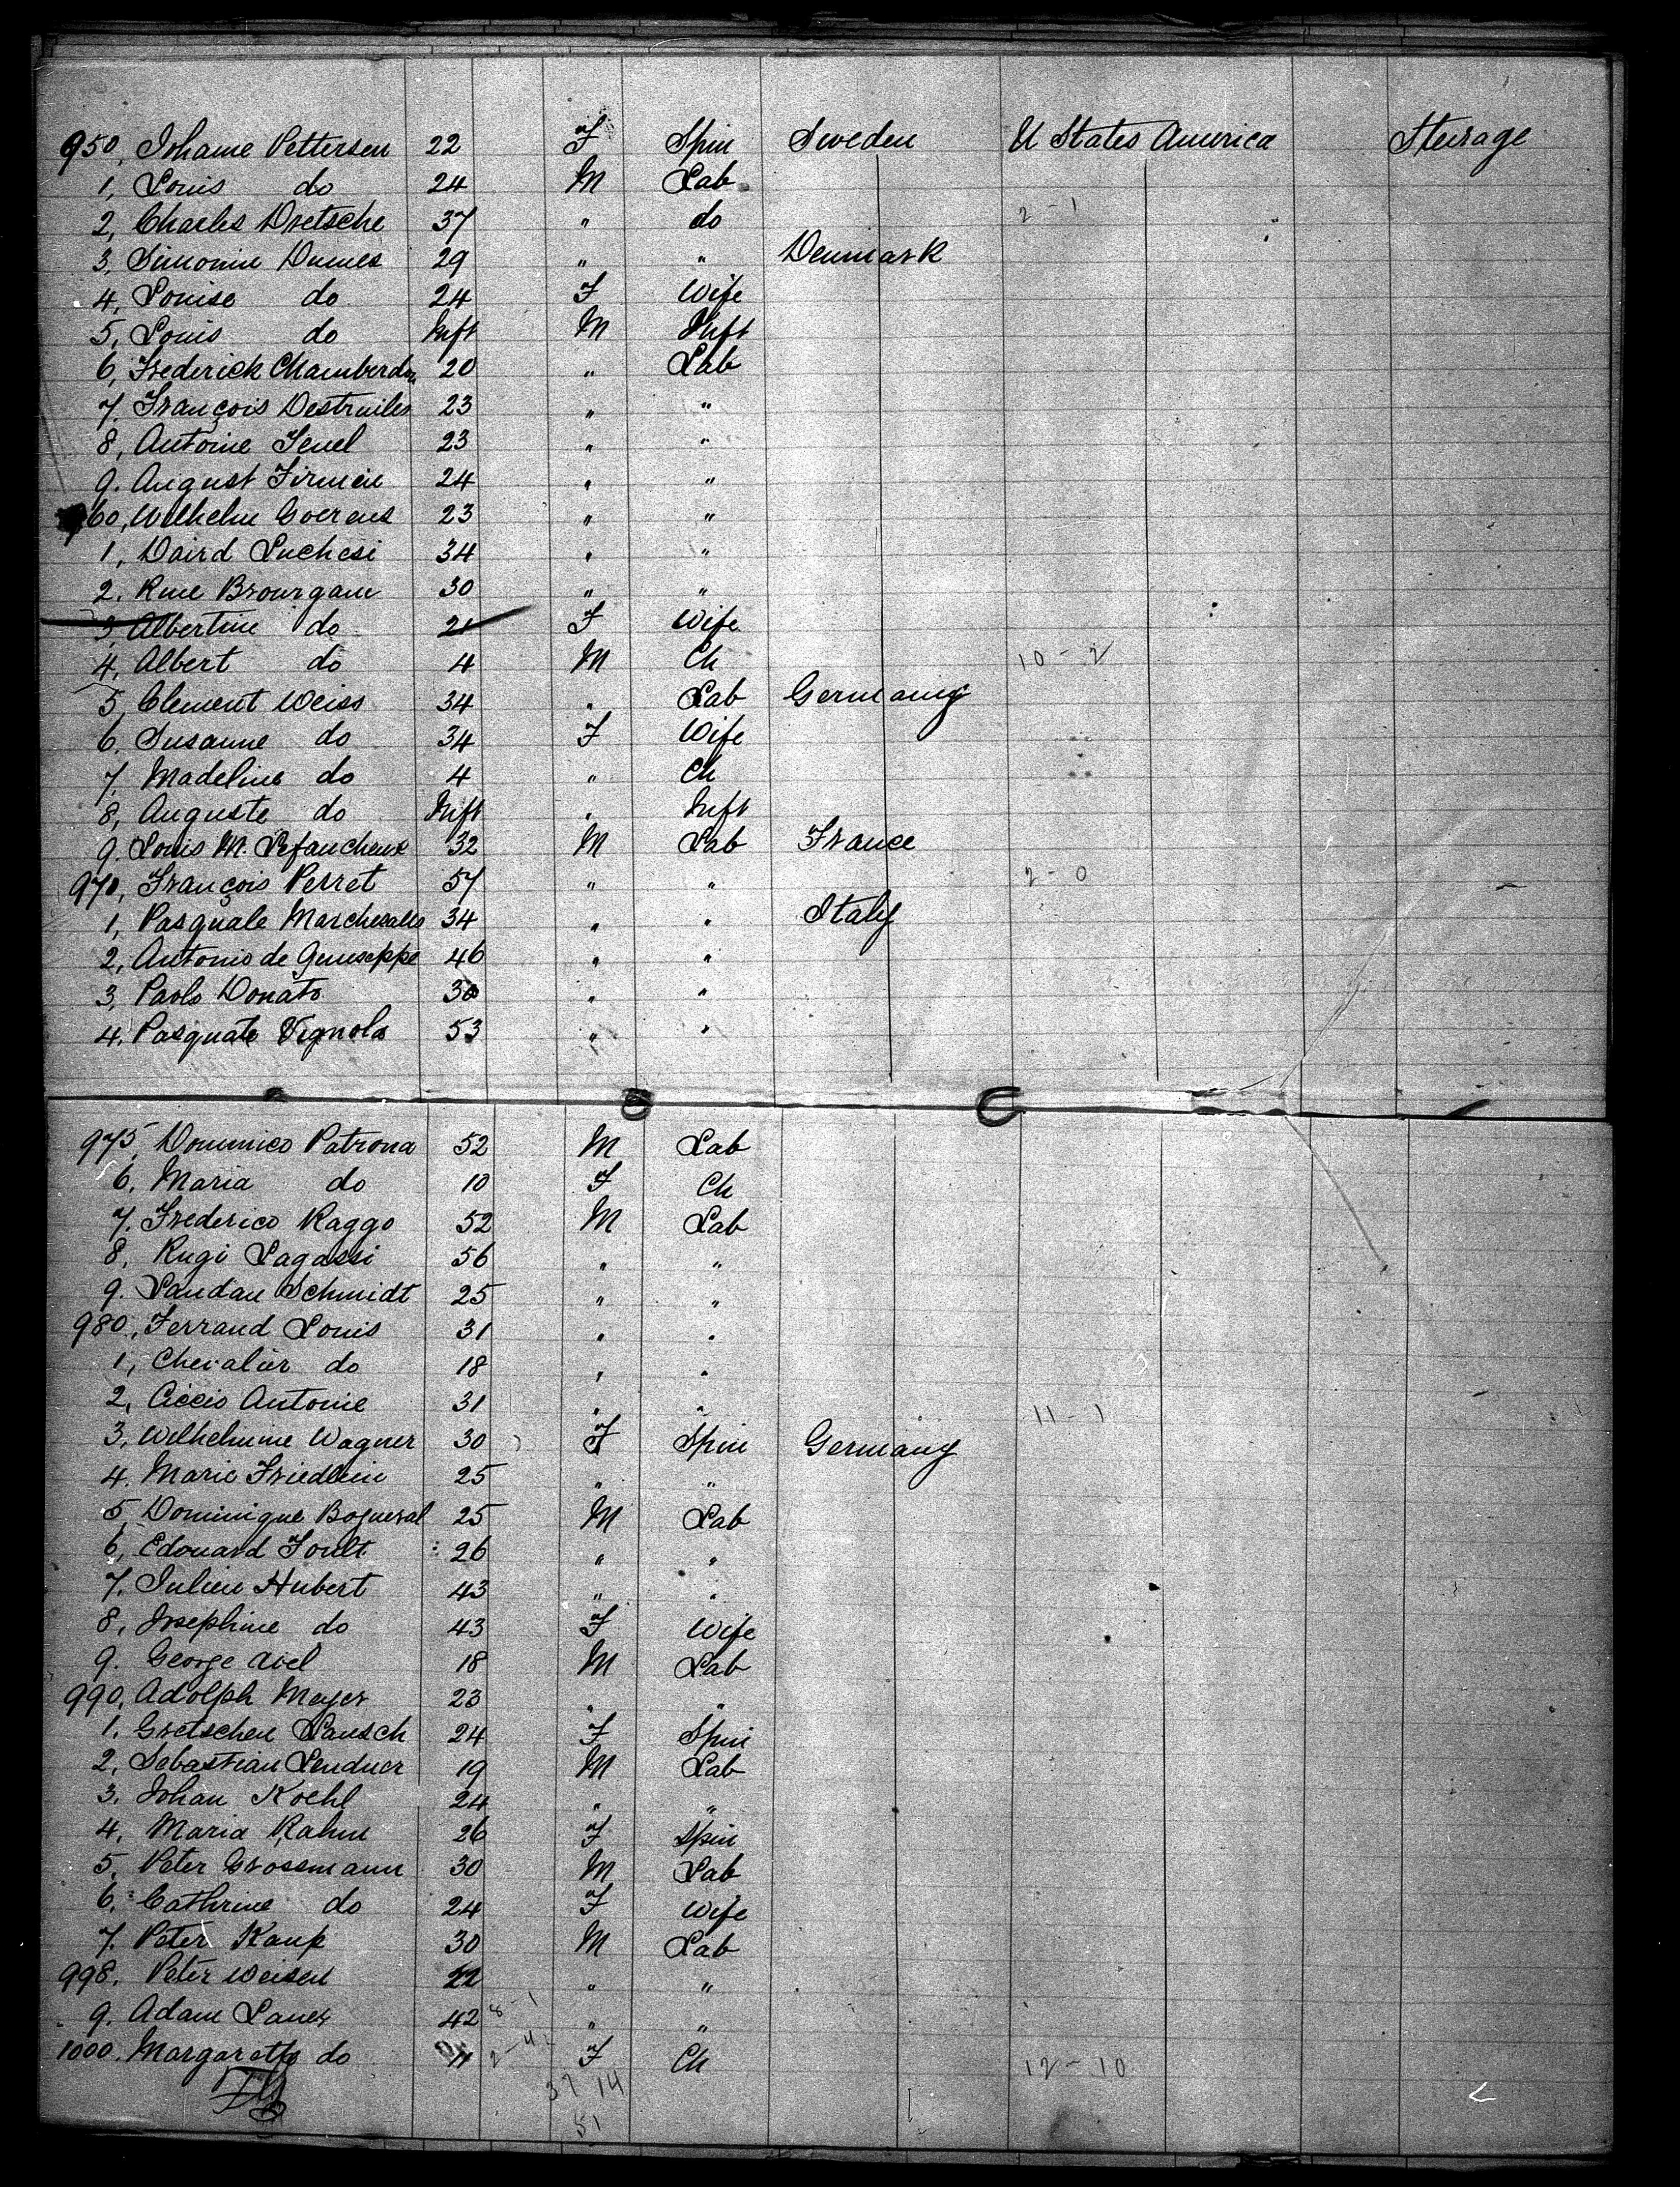 950, Johanne Pettersen 22 F Spin Sweden U States America Steerage
1, Louis do 24 M Lab
2, Charles Dretsche 37 " do 2 - 1
3, Simonin Dumes 29 " " Denmark
4, Louise do 24 F Wife
5, Louis do Inft M Inft
6, Frederick Chamberdon 20 " Lab
7, François Destruiles 23 " "
8, Antoine Jenel 23 " "
9. August Firmin 24 " "
960, Wilhelm Goerens 23 " "
1, Daird Luchesi 34 " "
2. Rene Brourgam 30 " "
3, Albertine do 21 F Wife
4, Albert do 4 M Ch 10 - 2
5 Clement Weiss 34 " Lab Germany
6. Susanne do 34 F Wife
7, Madeline do 4 " Ch
8, Auguste do Inft " Inft
9. Louis M. Lefaucheux 32 M Lab France
970, François Perret 57 " " 2 - 0
1, Pasquale Marchesalls 34 " " Italy
2, Antonio de Guiseppe 46 " "
3, Paolo Donato 30 " "
4. Pasquale Vignola 53 " "
975, Dominico Patrona 52 M Lab
6. Maria do 10 F Ch
7. Frederico Raggo 52 M Lab
8, Rugi Lagassi 56 " "
9. Landau Schmidt 25 " "
980, Ferrand Louis 31 " "
1, Chevalier do 18 " "
2, Ciccio Antonie 31 " " 11 - 1
3, Wilhelmine Wagner 30 F Spin Germany
4. Marie Friedlein 25 " "
5, Dominique Bogueral 25 M Lab
6, Edouard Foult 26 " "
7. Julien Hubert 43 " "
8, Josephine do 43 F Wife
9. George Abel 18 M Lab
990, Adolph Meyer 23 " "
1. Gretschen Lausch 24 F Spin
2, Sebastian Lendner 19 M Lab
3. Johan Koehl 24 " "
4, Maria Rahm 26 F Spin
5, Peter Grossmann 30 M Lab
6, Cathrine do 24 F Wife
7. Peter Kaup 30 M Lab
998. Peter Weisen 22 " "
9. Adam Laner 42 8 - 1 " "
1000. Margaretta do 11 2 - 4 F Ch 12 - 10
37 14
51